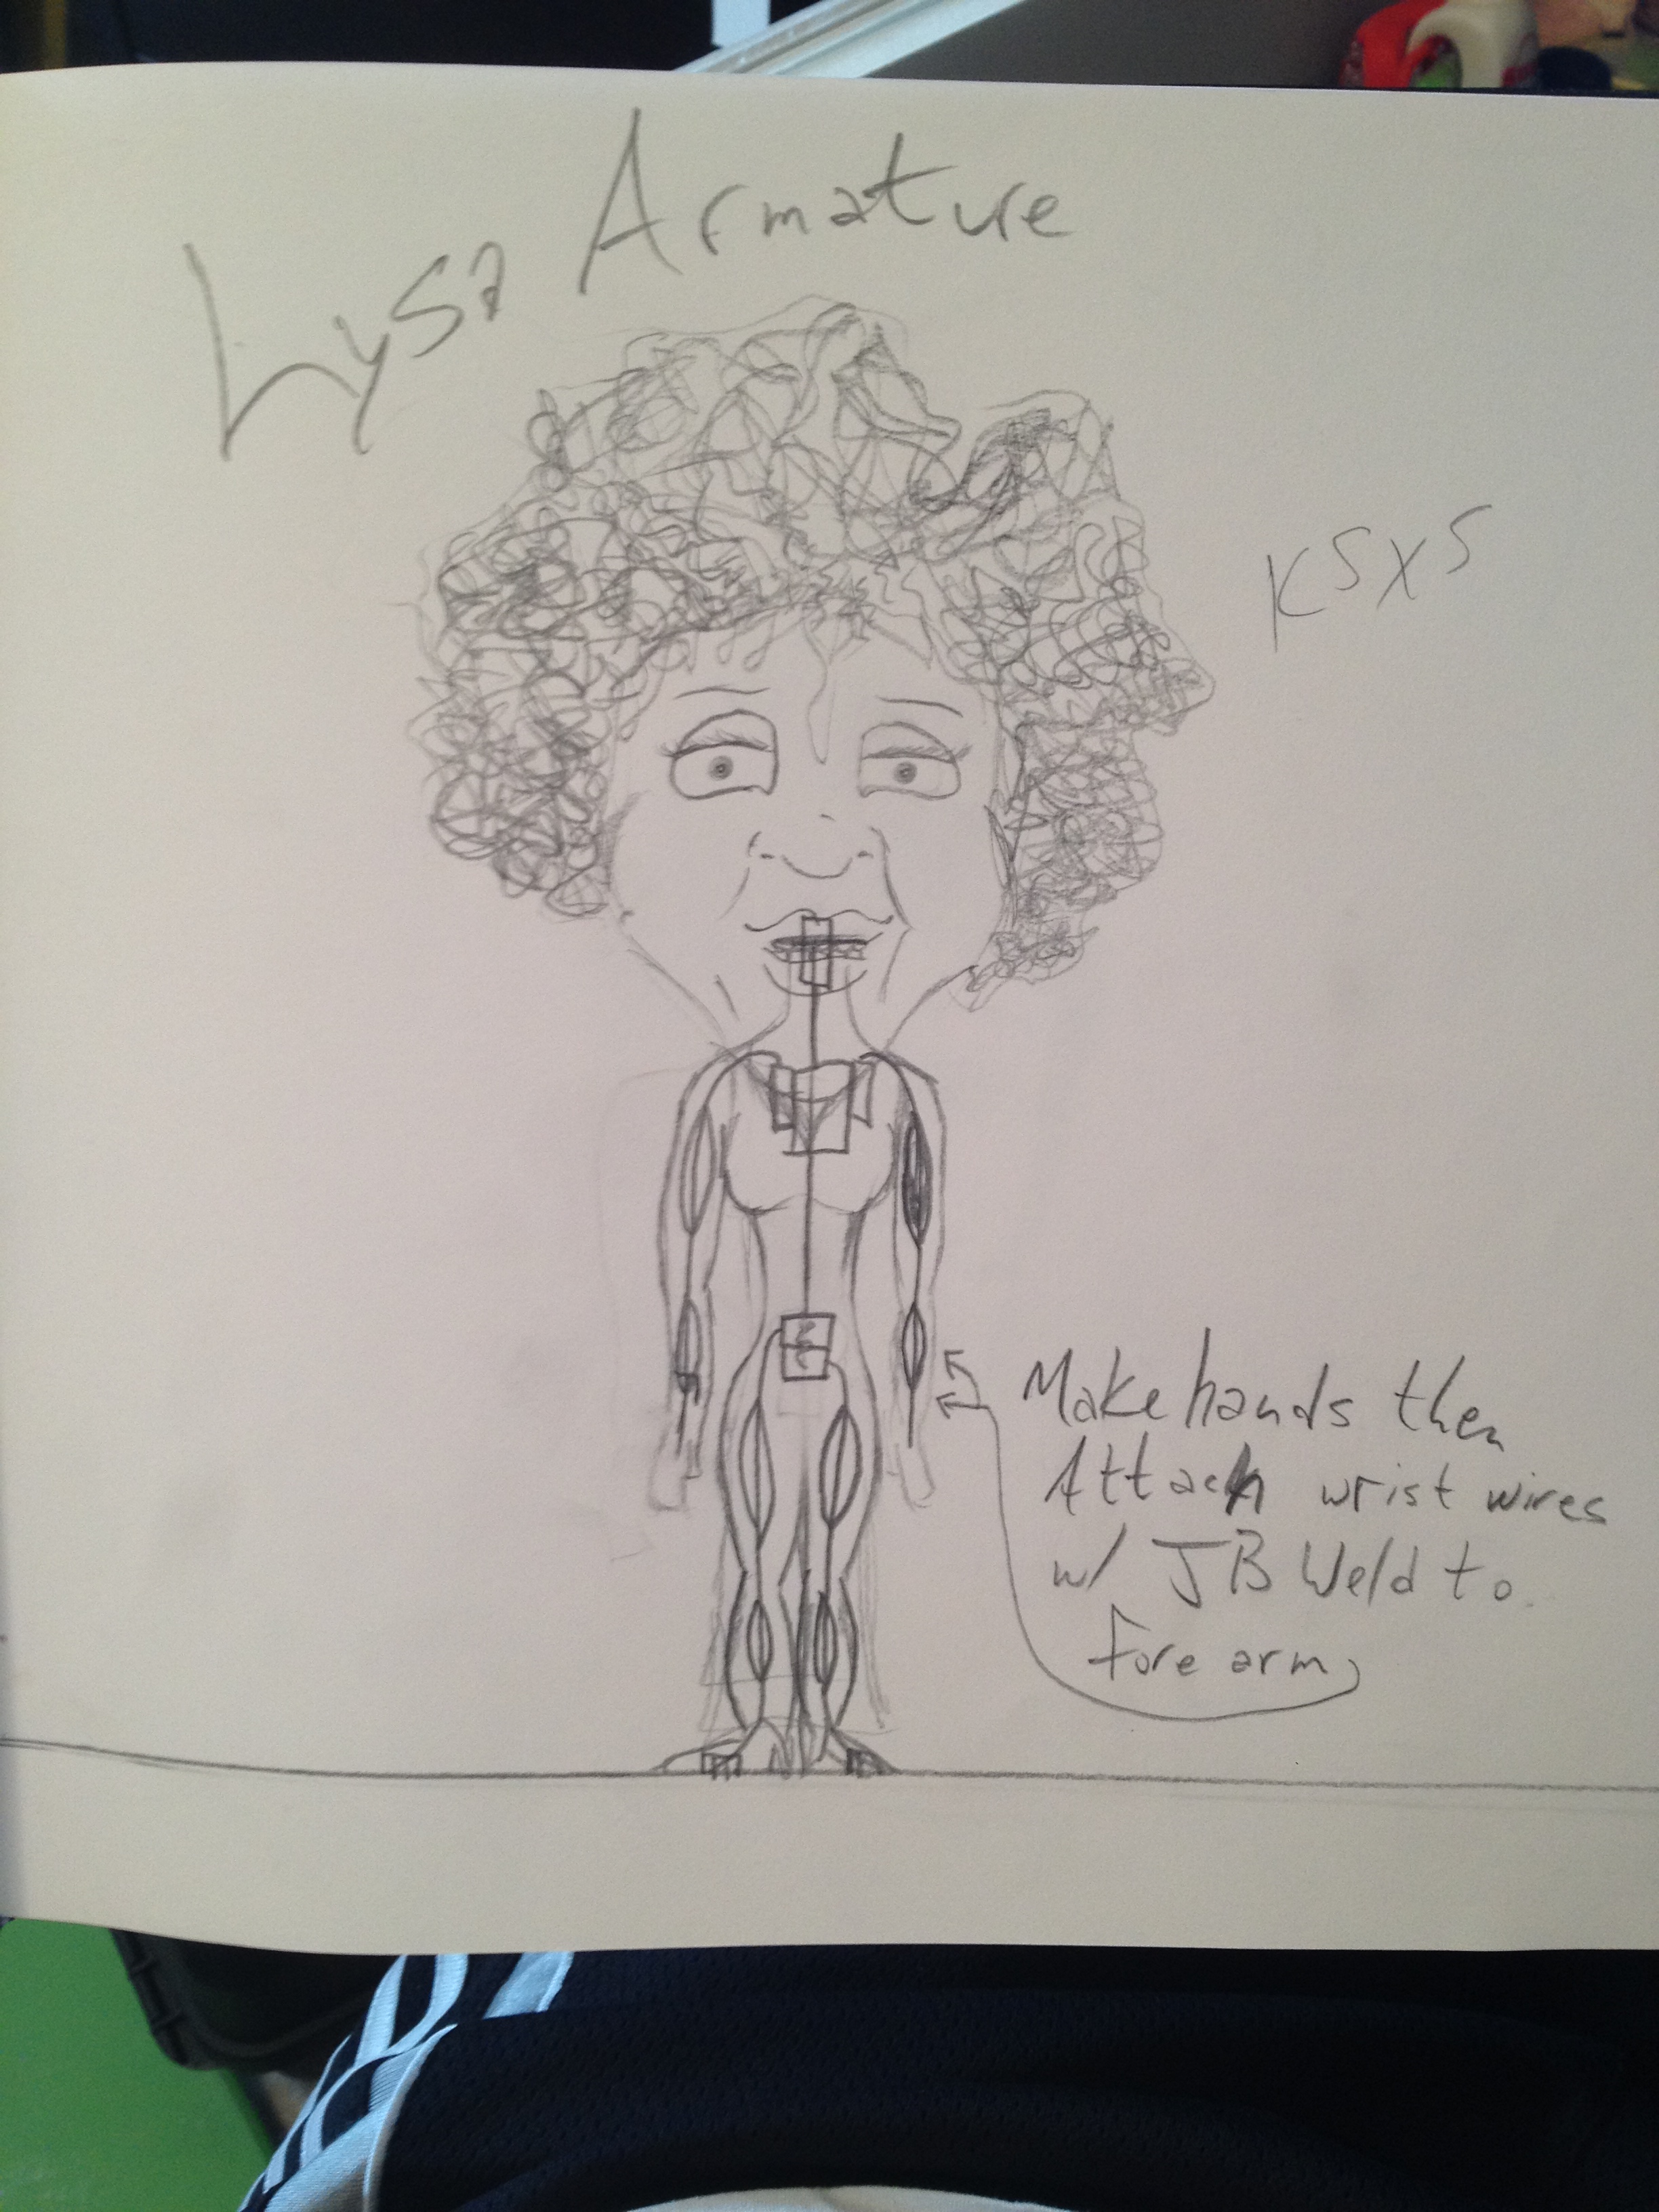 Lysa Armature
KSXS
Make hands then
Attach wrist wires
w/ JB Weld to
Fore arm